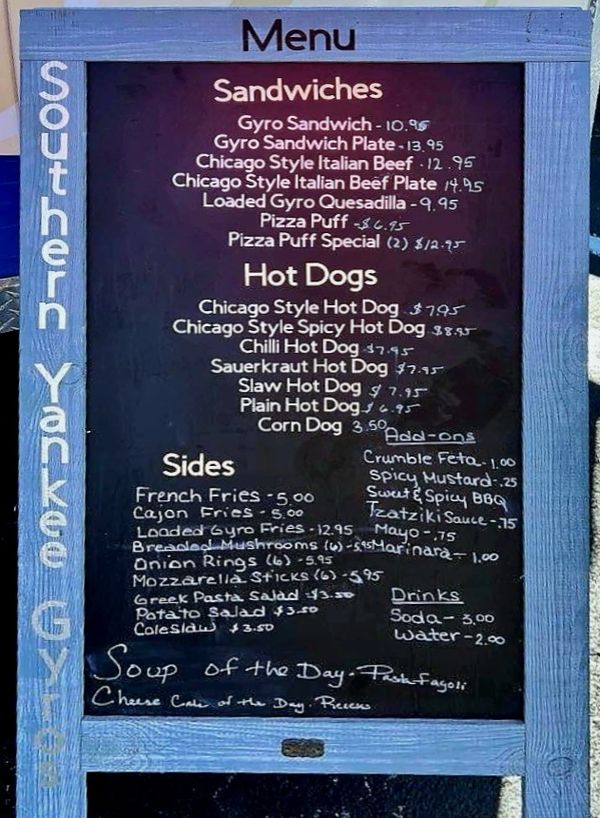 Menu
Southern Yankee Gyros
Sandwiches
Gyro Sandwich - 10.95
Gyro Sandwich Plate - 13.95
Chicago Style Italian Beef - 12.95
Chicago Style Italian Beef Plate 14.95
Loaded Gyro Quesadilla - 9.95
Pizza Puff - $6.95
Pizza Puff Special (2) $12.95
Hot Dogs
Chicago Style Hot Dog $7.95
Chicago Style Spicy Hot Dog $8.95
Chilli Hot Dog $7.95
Sauerkraut Hot Dog $7.95
Slaw Hot Dog $7.95
Plain Hot Dog $6.95
Corn Dog 3.50
Sides
French Fries - 5.00
Cajon Fries - 5.00
Loaded Gyro Fries - 12.95
Breaded Mushrooms (6) - 5.95
Onion Rings (6) - 5.95
Mozzarella Sticks (6) - 5.95
Greek Pasta Salad - $3.50
Potato Salad - $3.50
Coleslaw $3.50
Add-ons
Crumble Feta - 1.00
Spicy Mustard - .25
Sweet & Spicy BBQ
Tzatziki Sauce - .75
Mayo - .75
Marinara - 1.00
Drinks
Soda - 3.00
Water - 2.00
Soup of the Day - Pasta Fagoli
Cheese Cake of the Day -